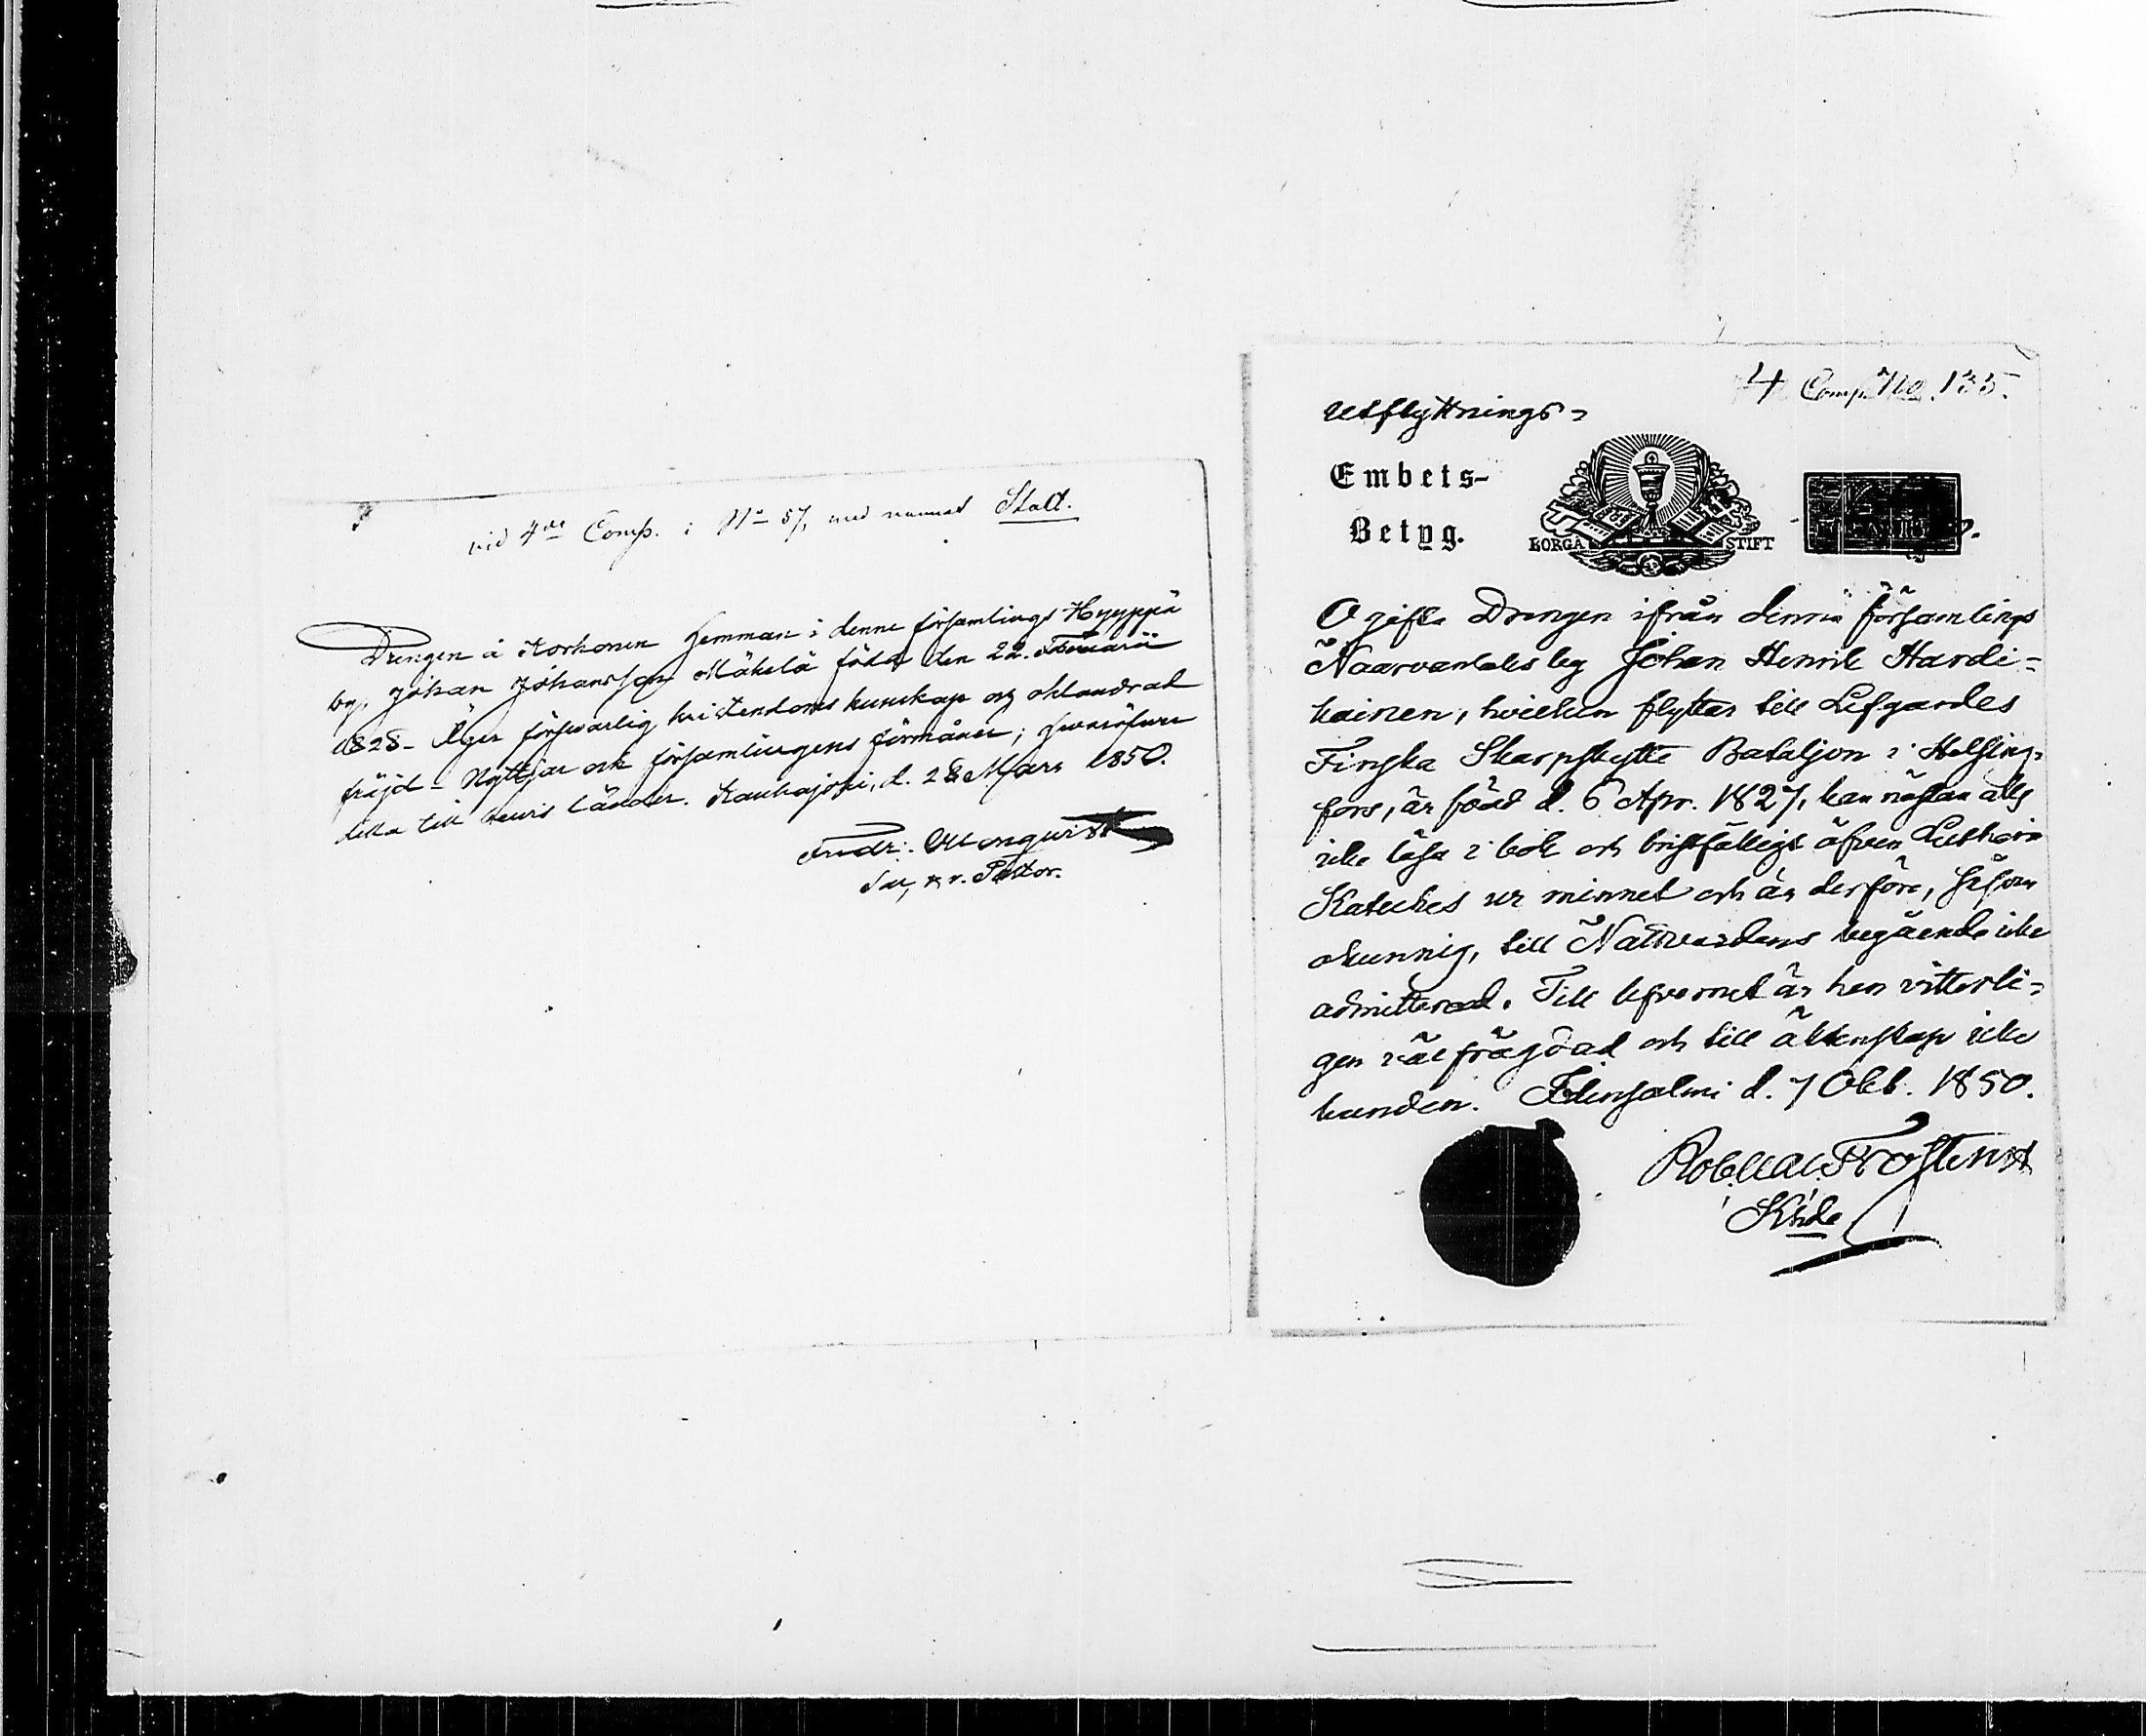 vid 4de Comp. i No 57, med namnet Stalt.
Drengen å Korhonen hemman i denne församlings Hyyppä
by, Johan Johansson Mäkelä född den 22. Februarii
1828 - Äger försvarlig kristendoms kunskap og oklandrad
fräjd - Nyttjar ock församlingens förmåner;
detta till bevis länder. Kauhajoki, d. 28 Mars 1850.
Fredr.
v. Pastor.
4 Comp. No. 135.
Utflyttnings-
Embets-
Betyg.
BORGÅ STIFT
Ogifte Drengen ifrån denna församlings
Naarvanlaks by Johan Henrik Hardi-
kainen, hvilken flyttar till Lifgardes
Finska Skarpskytte Bataljon i Helsing-
fors, är född d. 6 Apr. 1827, kan nästan alls
icke läsa i bok och bristfälligt äfven Lutheri
Kateches ur minnet och är derföre, såsom
okunnig, till Nattvardens begående icke
admitterad. Till lefvernet är han vitterli-
gen väl frägdad och till äktenskap icke
bunden. Idensalmi d. 7 Okt. 1850.
Rob. Val. Frosterus
Khde